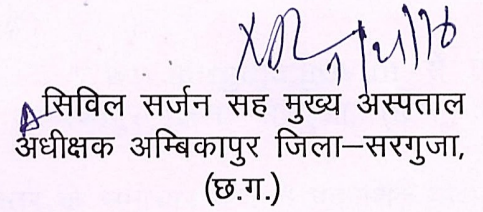 सिविल सर्जन सह मुख्य अस्पताल
अधीक्षक अम्बिकापुर जिला–सरगुजा,
(छ.ग.)